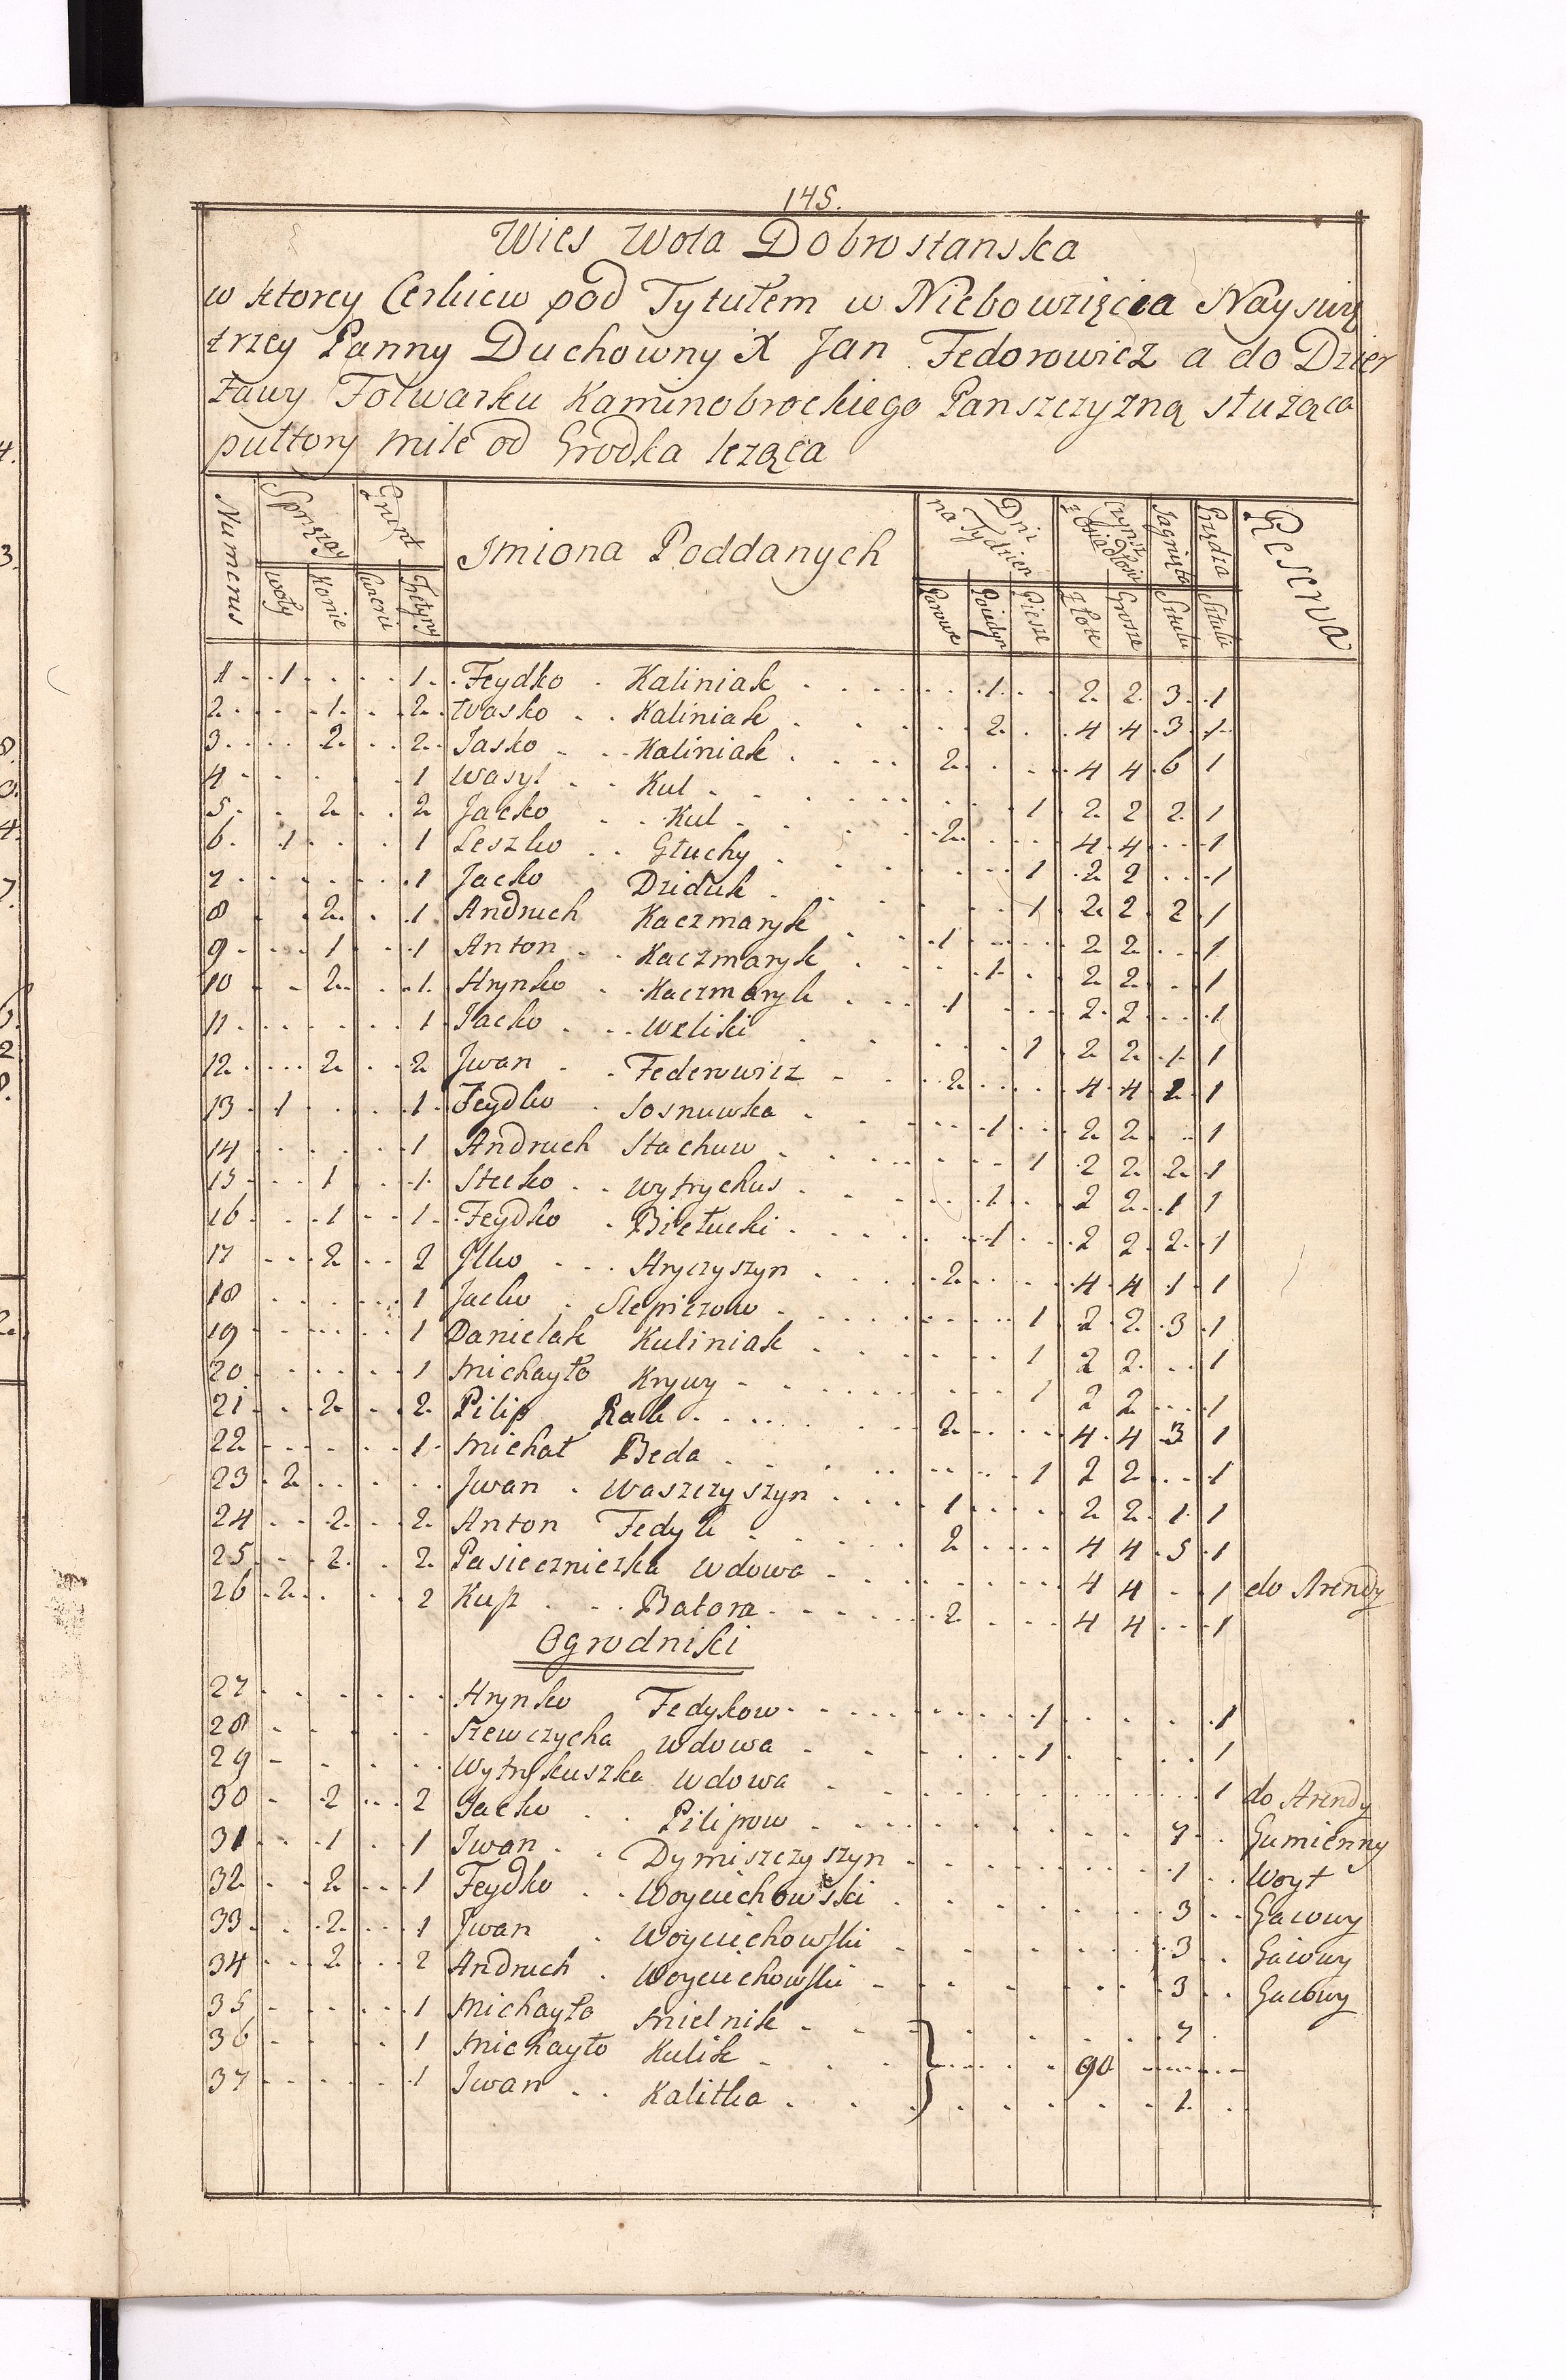 145.
Wies Wola Dobrostanska
w ktorey Cerkiew pod Tytułem w Niebowzięcia Nayswię
trzey Panny Duchowny X Jan Fedorowicz a do Dzier
żawy Folwarku Kaminobrockiego Panszczyzną służąca
pułtory mile od Grodka leząca
Numerus Sprzęzay Grunt Imiona Poddanych Dni na Tydzien Czynsz z Osiadłosci Jagnięta Przędza Reserva
Woły Konie Cwierci Tretyny Parowe Poiedyn Piesze Złote Grosze Sztuki Sztuki
1 1 1 Feydko Kaliniak 1 2 2 3 1
2 1 2 Wasko Kaliniak 2 4 4 3 1
3 2 2 Jasko Kaliniak 2 4 4 6 1
4 1 Wasyl Kul 1 2 2 2 1
5 2 2 Jacko Kul 2 4 4 1
6 1 1 Leszko Głuchy 1 2 2 1
7 1 Jacko Dziduk 1 2 2 2 1
8 2 1 Andruch Kaczmaryk 1 2 2 1
9 1 1 Anton Kaczmaryk 1 2 2 1
10 2 1 Hrynko Kaczmaryk 1 2 2 1
11 1 Jacko Weliki 1 2 2 1 1
12 2 2 Jwan Federowicz 2 4 4 2 1
13 1 1 Feydko Sosnuwka 1 2 2 1
14 1 Andruch Stachuw 1 2 2 2 1
15 1 1 Stecko Wytrychus 1 2 2 1 1
16 1 1 Feydko Biełucki 1 2 2 2 1
17 2 2 Jlko Hryczyszyn 2 4 4 1 1
18 1 Jacko Slepiczow 1 2 2 3 1
19 1 Danielak Kuliniak 1 2 2 1
20 1 Michayło Krywy 1 2 2 1
21 2 2 Pilip Rak 2 4 4 3 1
22 1 Michał Beda 1 2 2 1
23 2 Jwan Waszczyszyn 1 2 2 1 1
24 2 2 Anton Fedyk 2 4 4 5 1
25 2 2 Pasieczniczka Wdowa 4 4 1 do Arendy
26 2 2 Kup Batora 2 4 4 1
Ogrodniki
27 Hrynko Fedykow 1 1
28 Szewczycha Wdowa 1 1
29 Wytrykuszka Wdowa 1 do Arendy
30 2 2 Jacko Pilipow 7 Gumienny
31 1 1 Jwan Dymiszczyszyn 1 Woyt
32 2 1 Feydko Woyciechowski 3 Gaiowy
33 2 1 Jwan Woyciechowski 3 Gaiowy
34 2 2 Andruch Woyciechowski 3 Gaiowy
35 1 Michayło Mielnik 7
36 1 Michayło Kulik 90
37 1 Jwan Kalitka 1